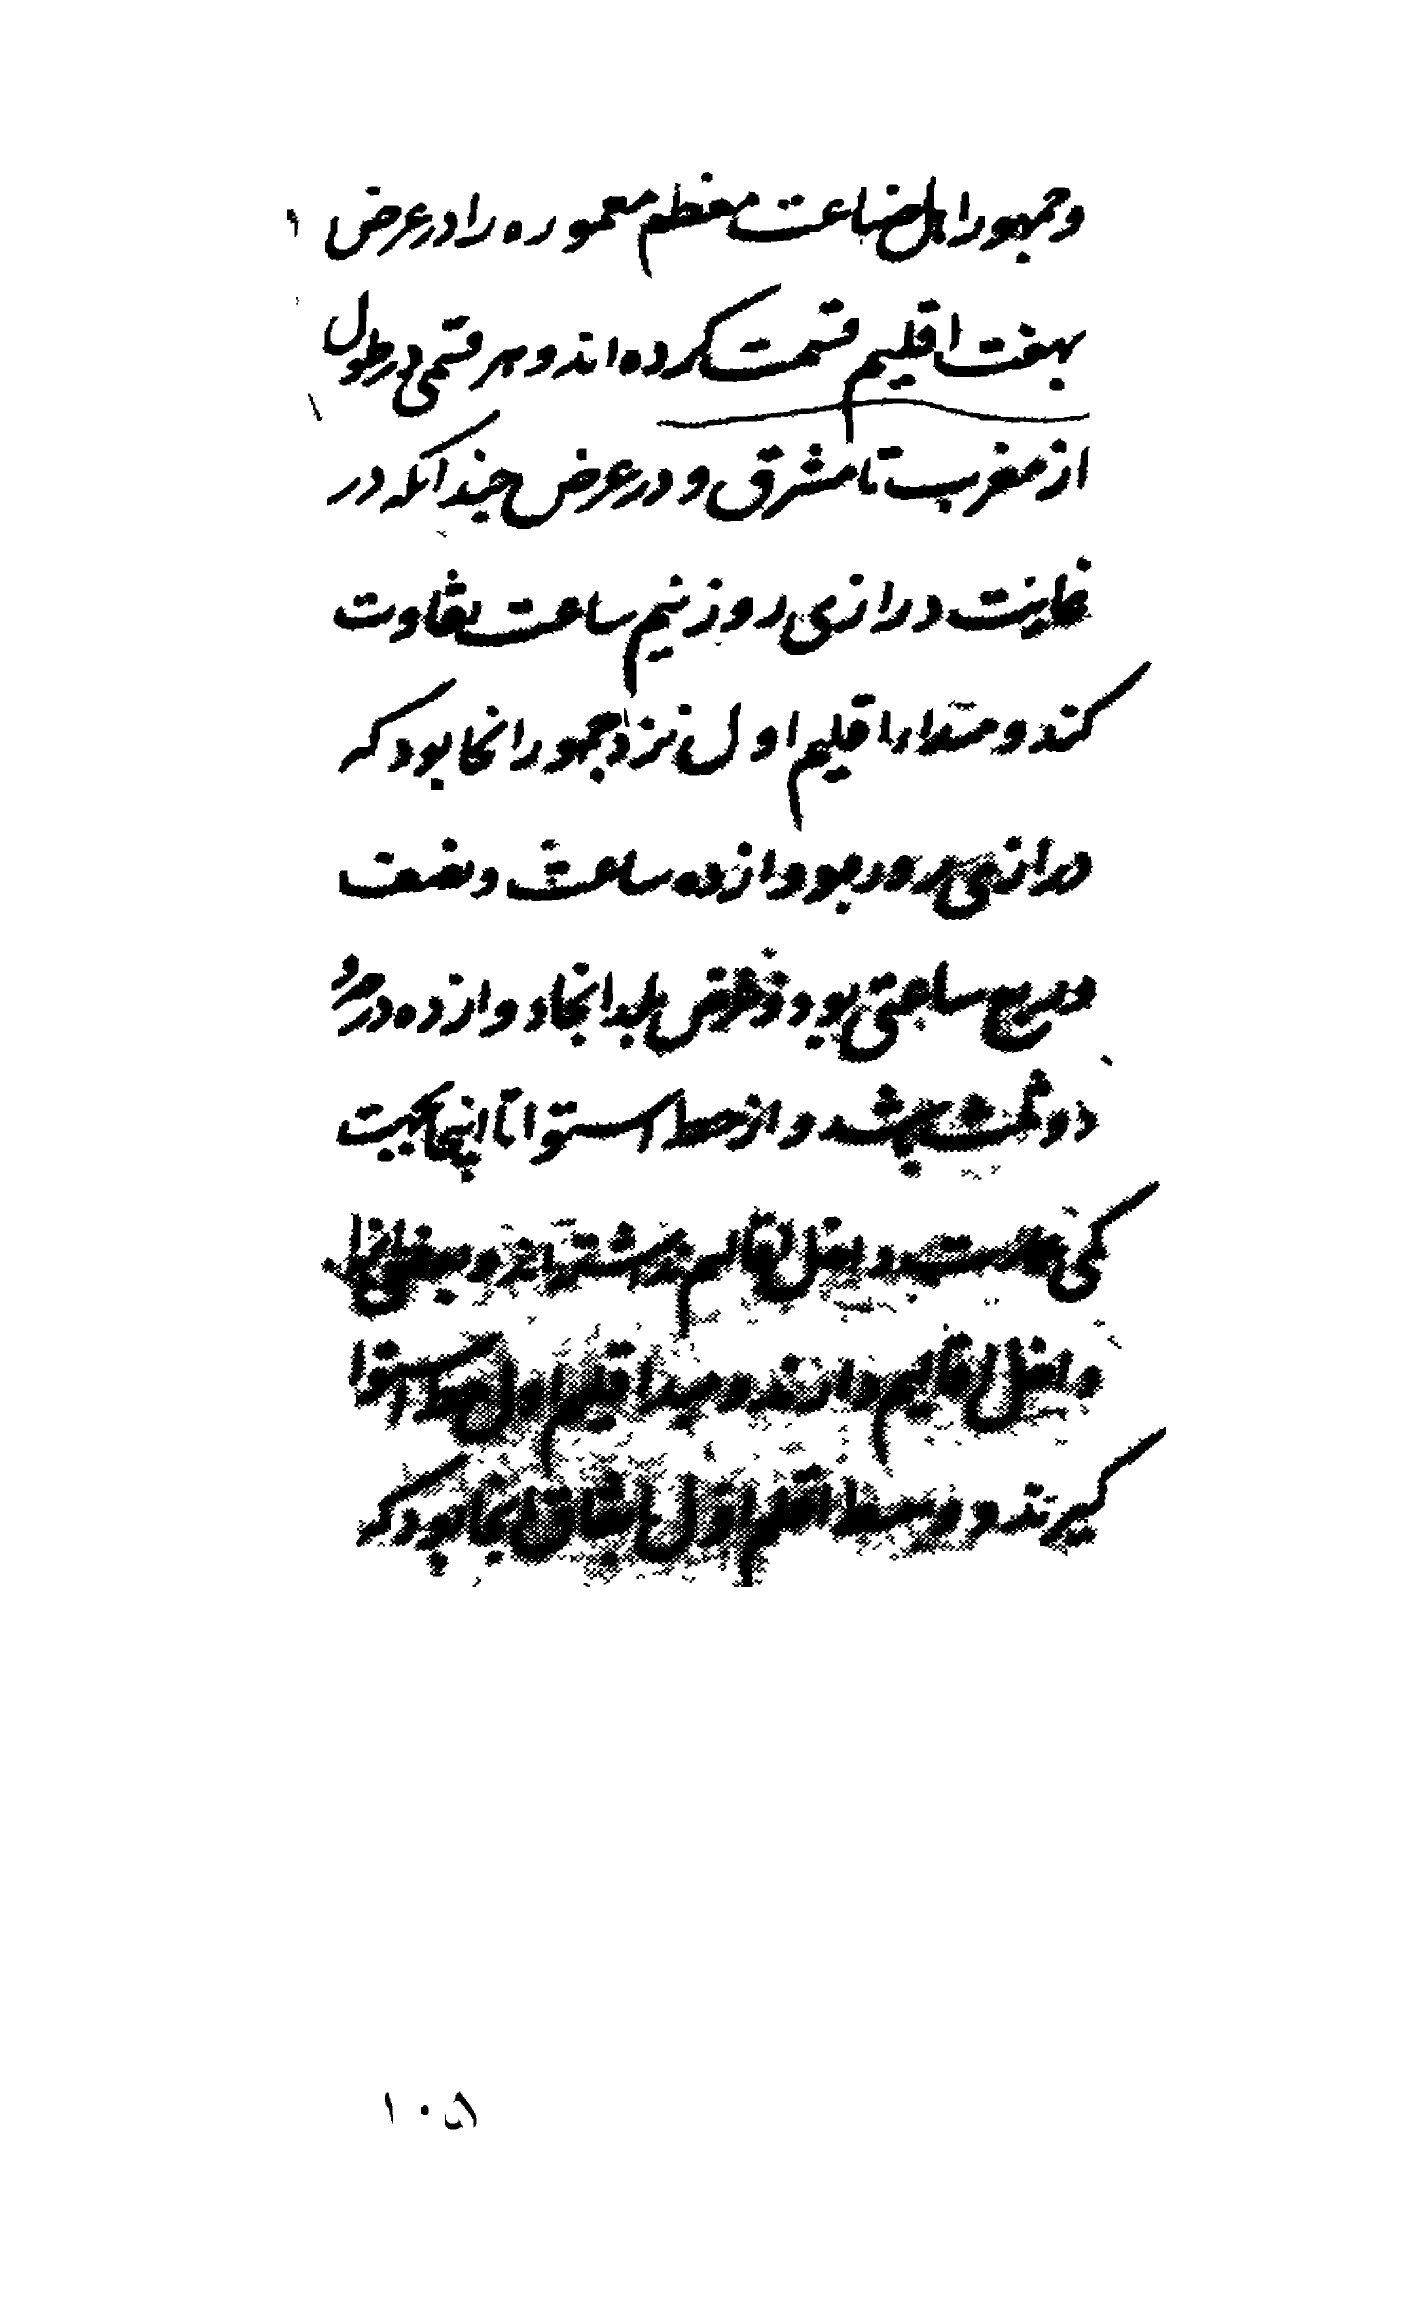 وجمهور اهل ضاعت معظم معموره را در عرض
بهفت اقلیم قسمت کرده اند و هر قسمی در طول
از مغرب تا مشرق و در عرض چندانکه در
غایت درازی روز نیم ساعت تفاوت
کند و مبداء اقلیم اول نزد جمهور انجا بود که
درازی روز دوازده ساعت و نصف
و ربع ساعتی بود و عرض بلد انجا دوازده درجه و
دو ثلث باشد و از خط استوا تا اینجا بجهت
کمی عمارت داخل اقالیم نداشته اند و بعضی انجا
داخل اقالیم دارند و مبدا اقلیم اول خط استوا
گیرند و وسط اقلیم اول باتفاق انجا بود که
۱۰۵